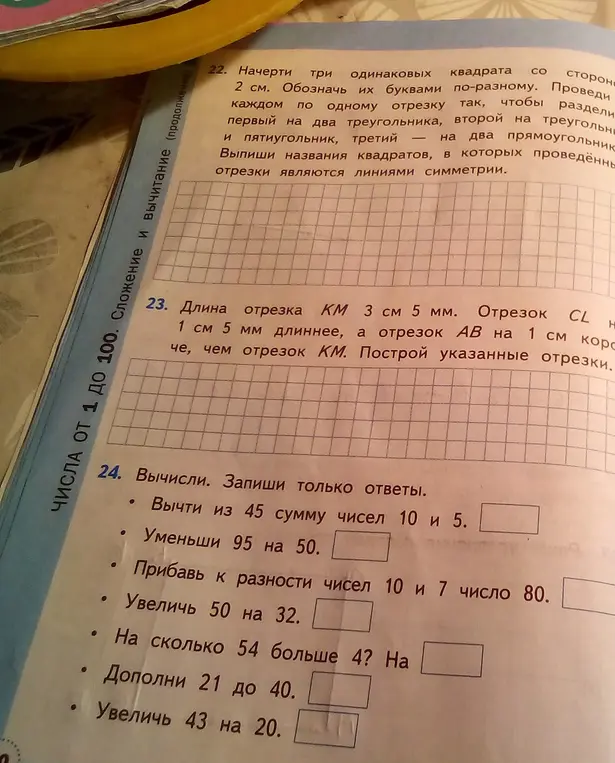 22. Начерти три одинаковых квадрата со
2 см. Обозначь их буквами по-разному. Проведи
каждом по одному отрезку так, чтобы
первый на два треугольника, второй на
и пятиугольник, третий — на два
Выпиши названия квадратов, в которых
отрезки являются линиями симметрии.
23. Длина отрезка КМ 3 см 5 мм. Отрезок CL
1 см 5 мм длиннее, а отрезок АВ на 1 см коро-
че, чем отрезок КМ. Построй указанные отрезки.
24. Вычисли. Запиши только ответы.
• Вычти из 45 сумму чисел 10 и 5.
• Уменьши 95 на 50.
• Прибавь к разности чисел 10 и 7 число 80.
• Увеличь 50 на 32.
• На сколько 54 больше 4? На
• Дополни 21 до 40.
• Увеличь 43 на 20.
ЧИСЛА ОТ 1 ДО 100. Сложение и вычитание (продолжение